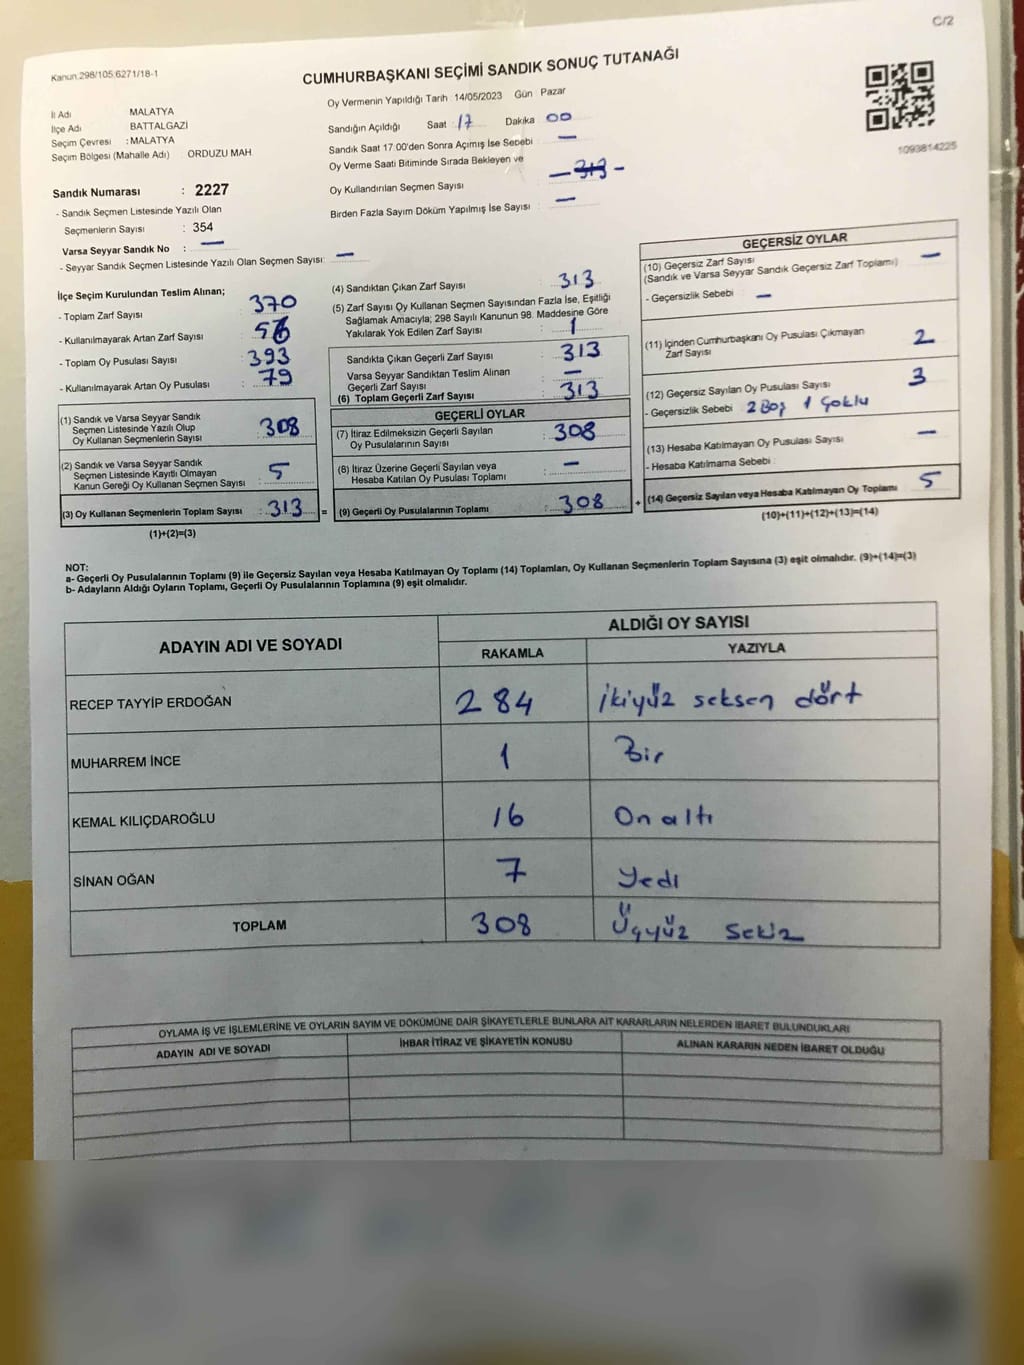 C/2
Kanun.298/105.6271/18-1
CUMHURBAŞKANI SEÇİMİ SANDIK SONUÇ TUTANAĞI
İl Adı MALATYA
İlçe Adı BATTALGAZİ
Seçim Çevresi : MALATYA
Seçim Bölgesi (Mahalle Adı) ORDUZU MAH.
Oy Vermenin Yapıldığı Tarih : 14/05/2023 Gün : Pazar
Sandığın Açıldığı Saat : 17 Dakika 00
Sandık Saat 17.00'den Sonra Açımış İse Sebebi : —
Oy Verme Saati Bitiminde Sırada Bekleyen ve
Oy Kullandırılan Seçmen Sayısı — 313 —
Birden Fazla Sayım Döküm Yapılmış İse Sayısı : —
1093814225
Sandık Numarası : 2227
- Sandık Seçmen Listesinde Yazılı Olan
Seçmenlerin Sayısı : 354
Varsa Seyyar Sandık No : —
- Seyyar Sandık Seçmen Listesinde Yazılı Olan Seçmen Sayısı: —
İlçe Seçim Kurulundan Teslim Alınan;
- Toplam Zarf Sayısı : 370
- Kullanılmayarak Artan Zarf Sayısı :
- Toplam Oy Pusulası Sayısı : 393
- Kullanılmayarak Artan Oy Pusulası : 79
(1) Sandık ve Varsa Seyyar Sandık
Seçmen Listesinde Yazılı Olup
Oy Kullanan Seçmenlerin Sayısı : 308
(2) Sandık ve Varsa Seyyar Sandık
Seçmen Listesinde Kayıtlı Olmayan
Kanun Gereği Oy Kullanan Seçmen Sayısı : 5
(3) Oy Kullanan Seçmenlerin Toplam Sayısı : 313 =
(1)+(2)=(3)
(4) Sandıktan Çıkan Zarf Sayısı : 313
(5) Zarf Sayısı Oy Kullanan Seçmen Sayısından Fazla İse, Eşitliği
Sağlamak Amacıyla; 298 Sayılı Kanunun 98. Maddesine Göre
Yakılarak Yok Edilen Zarf Sayısı : 1
Sandıkta Çıkan Geçerli Zarf Sayısı : 313
Varsa Seyyar Sandıktan Teslim Alınan
Geçerli Zarf Sayısı : —
(6) Toplam Geçerli Zarf Sayısı : 313
GEÇERLİ OYLAR
(7) İtiraz Edilmeksizin Geçerli Sayılan
Oy Pusulalarının Sayısı : 308
(8) İtiraz Üzerine Geçerli Sayılan veya
Hesaba Katılan Oy Pusulası Toplamı : —
(9) Geçerli Oy Pusulalarının Toplamı : 308 +
GEÇERSİZ OYLAR
(10) Geçersiz Zarf Sayısı —
(Sandık ve Varsa Seyyar Sandık Geçersiz Zarf Toplamı)
- Geçersizlik Sebebi : —
(11) İçinden Cumhurbaşkanı Oy Pusulası Çıkmayan
Zarf Sayısı 2
(12) Geçersiz Sayılan Oy Pusulası Sayısı 3
- Geçersizlik Sebebi : 2 Boş 1 Çoklu
(13) Hesaba Katılmayan Oy Pusulası Sayısı —
- Hesaba Katılmama Sebebi :
(14) Geçersiz Sayılan veya Hesaba Katılmayan Oy Toplamı 5
(10)+(11)+(12)+(13)=(14)
NOT:
a- Geçerli Oy Pusulalarının Toplamı (9) ile Geçersiz Sayılan veya Hesaba Katılmayan Oy Toplamı (14) Toplamları, Oy Kullanan Seçmenlerin Toplam Sayısına (3) eşit olmalıdır. (9)+(14)=(3)
b- Adayların Aldığı Oyların Toplamı, Geçerli Oy Pusulalarının Toplamına (9) eşit olmalıdır.
ADAYIN ADI VE SOYADI ALDIĞI OY SAYISI
RAKAMLA YAZIYLA
RECEP TAYYİP ERDOĞAN 284 İkiyüz seksen dört
MUHARREM İNCE 1 Bir
KEMAL KILIÇDAROĞLU 16 On altı
SİNAN OĞAN 7 Yedi
TOPLAM 308 Üçyüz Sekiz
OYLAMA İŞ VE İŞLEMLERİNE VE OYLARIN SAYIM VE DÖKÜMÜNE DAİR ŞİKAYETLERLE BUNLARA AİT KARARLARIN NELERDEN İBARET BULUNDUKLARI
ADAYIN ADI VE SOYADI İHBAR İTİRAZ VE ŞİKAYETİN KONUSU ALINAN KARARIN NEDEN İBARET OLDUĞU